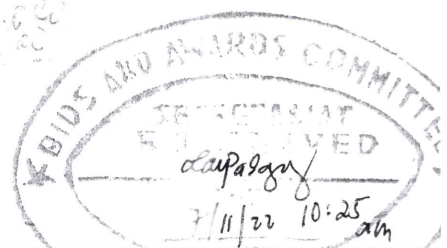 ★ BIDS AND AWARDS COMMITTEE
SECRETARIAT
RECEIVED
7/11/22 10:25 am